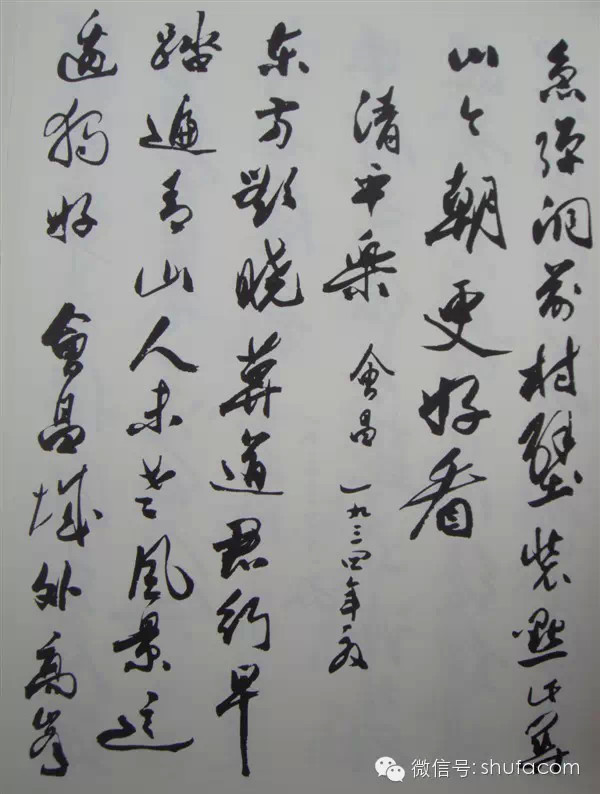 急弹洞前村壁装點此关
山今朝更好看
清平乐 會昌 一九三四年夏
东方欲晓莫道君行早
踏遍青山人未老风景这
边独好 會昌城外高峰
微信号: shufacom